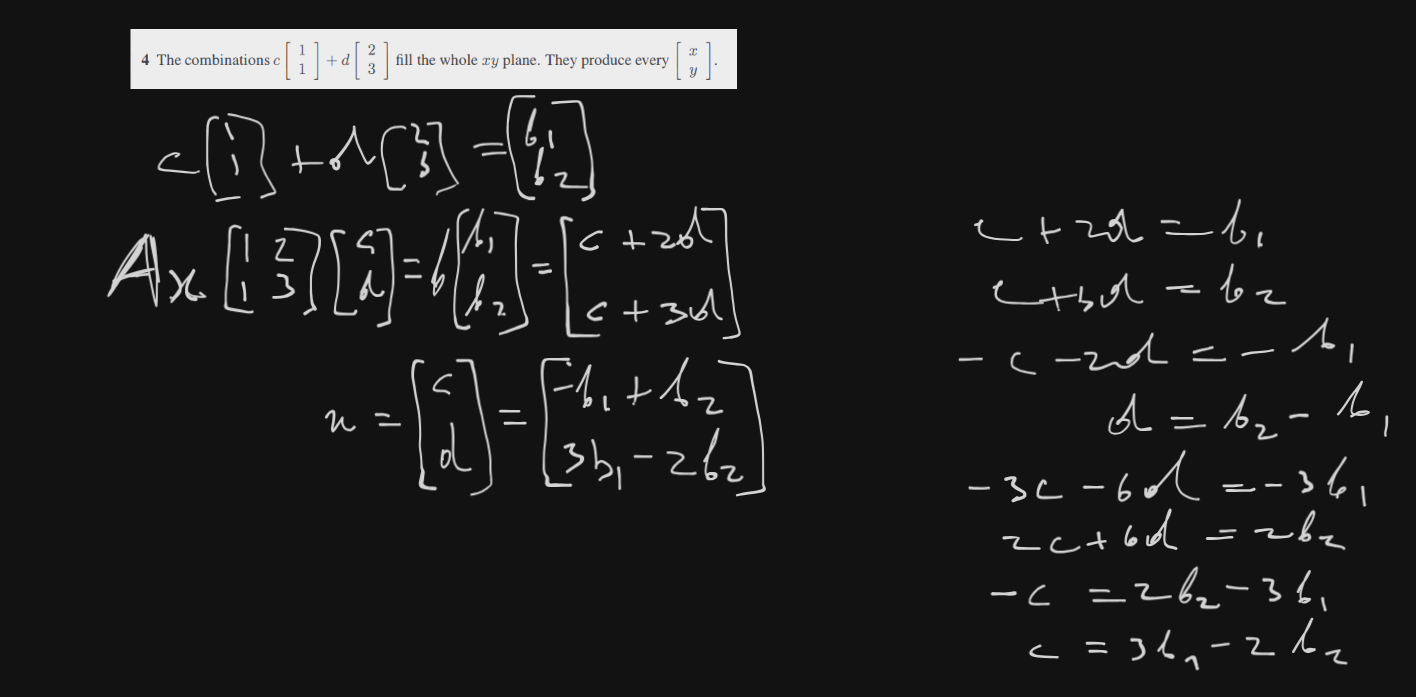 4 The combinations c [1 1] + d [2 3] fill the whole xy plane. They produce every [x y].
c [1 1] + d [2 3] = [b₁ b₂]
Ax. [1 2 1 3] [c d] = b [b₁ b₂] = [c + 2d c + 3d]
x = [c d] = [-b₁ + b₂ 3b₁ - 2b₂]
c + 2d = b₁
c + 3d = b₂
- c - 2d = - b₁
d = b₂ - b₁
- 3c - 6d = - 3b₁
2c + 6d = 2b₂
- c = 2b₂ - 3b₁
c = 3b₁ - 2b₂